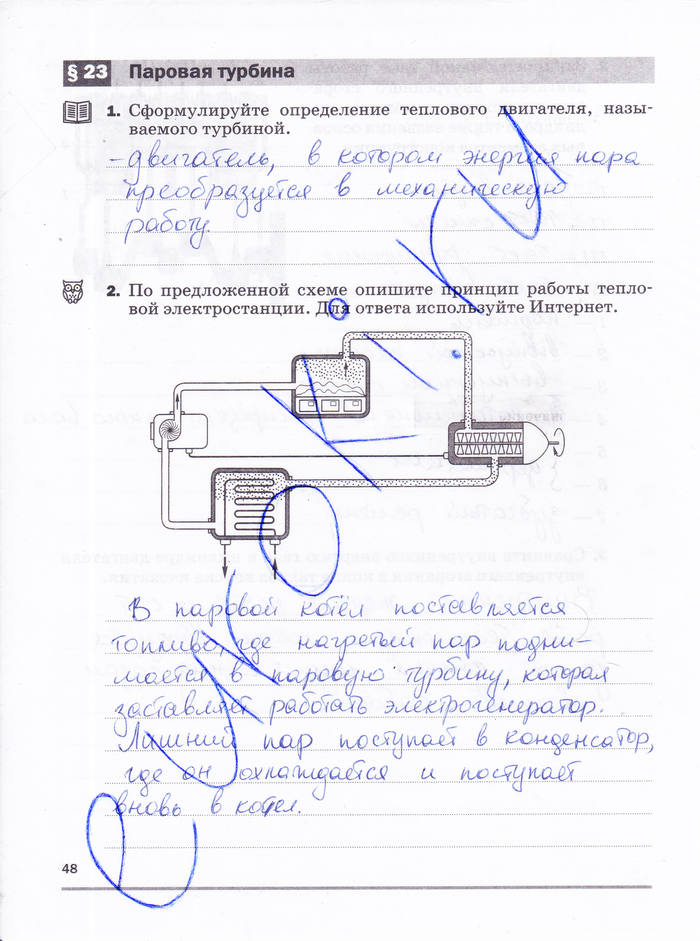 § 23 Паровая турбина
1. Сформулируйте определение теплового двигателя, назы-
ваемого турбиной.
- двигатель, в котором энергия пара
преобразуется в механическую
работу.
2. По предложенной схеме опишите принцип работы тепло-
вой электростанции. Для ответа используйте Интернет.
В паровой котёл поставляется
топливо, где нагретый пар подни-
мается в паровую турбину, которая
заставляет работать электрогенератор.
Лишний пар поступает в конденсатор,
где он охлаждается и поступает
вновь в котел.
48